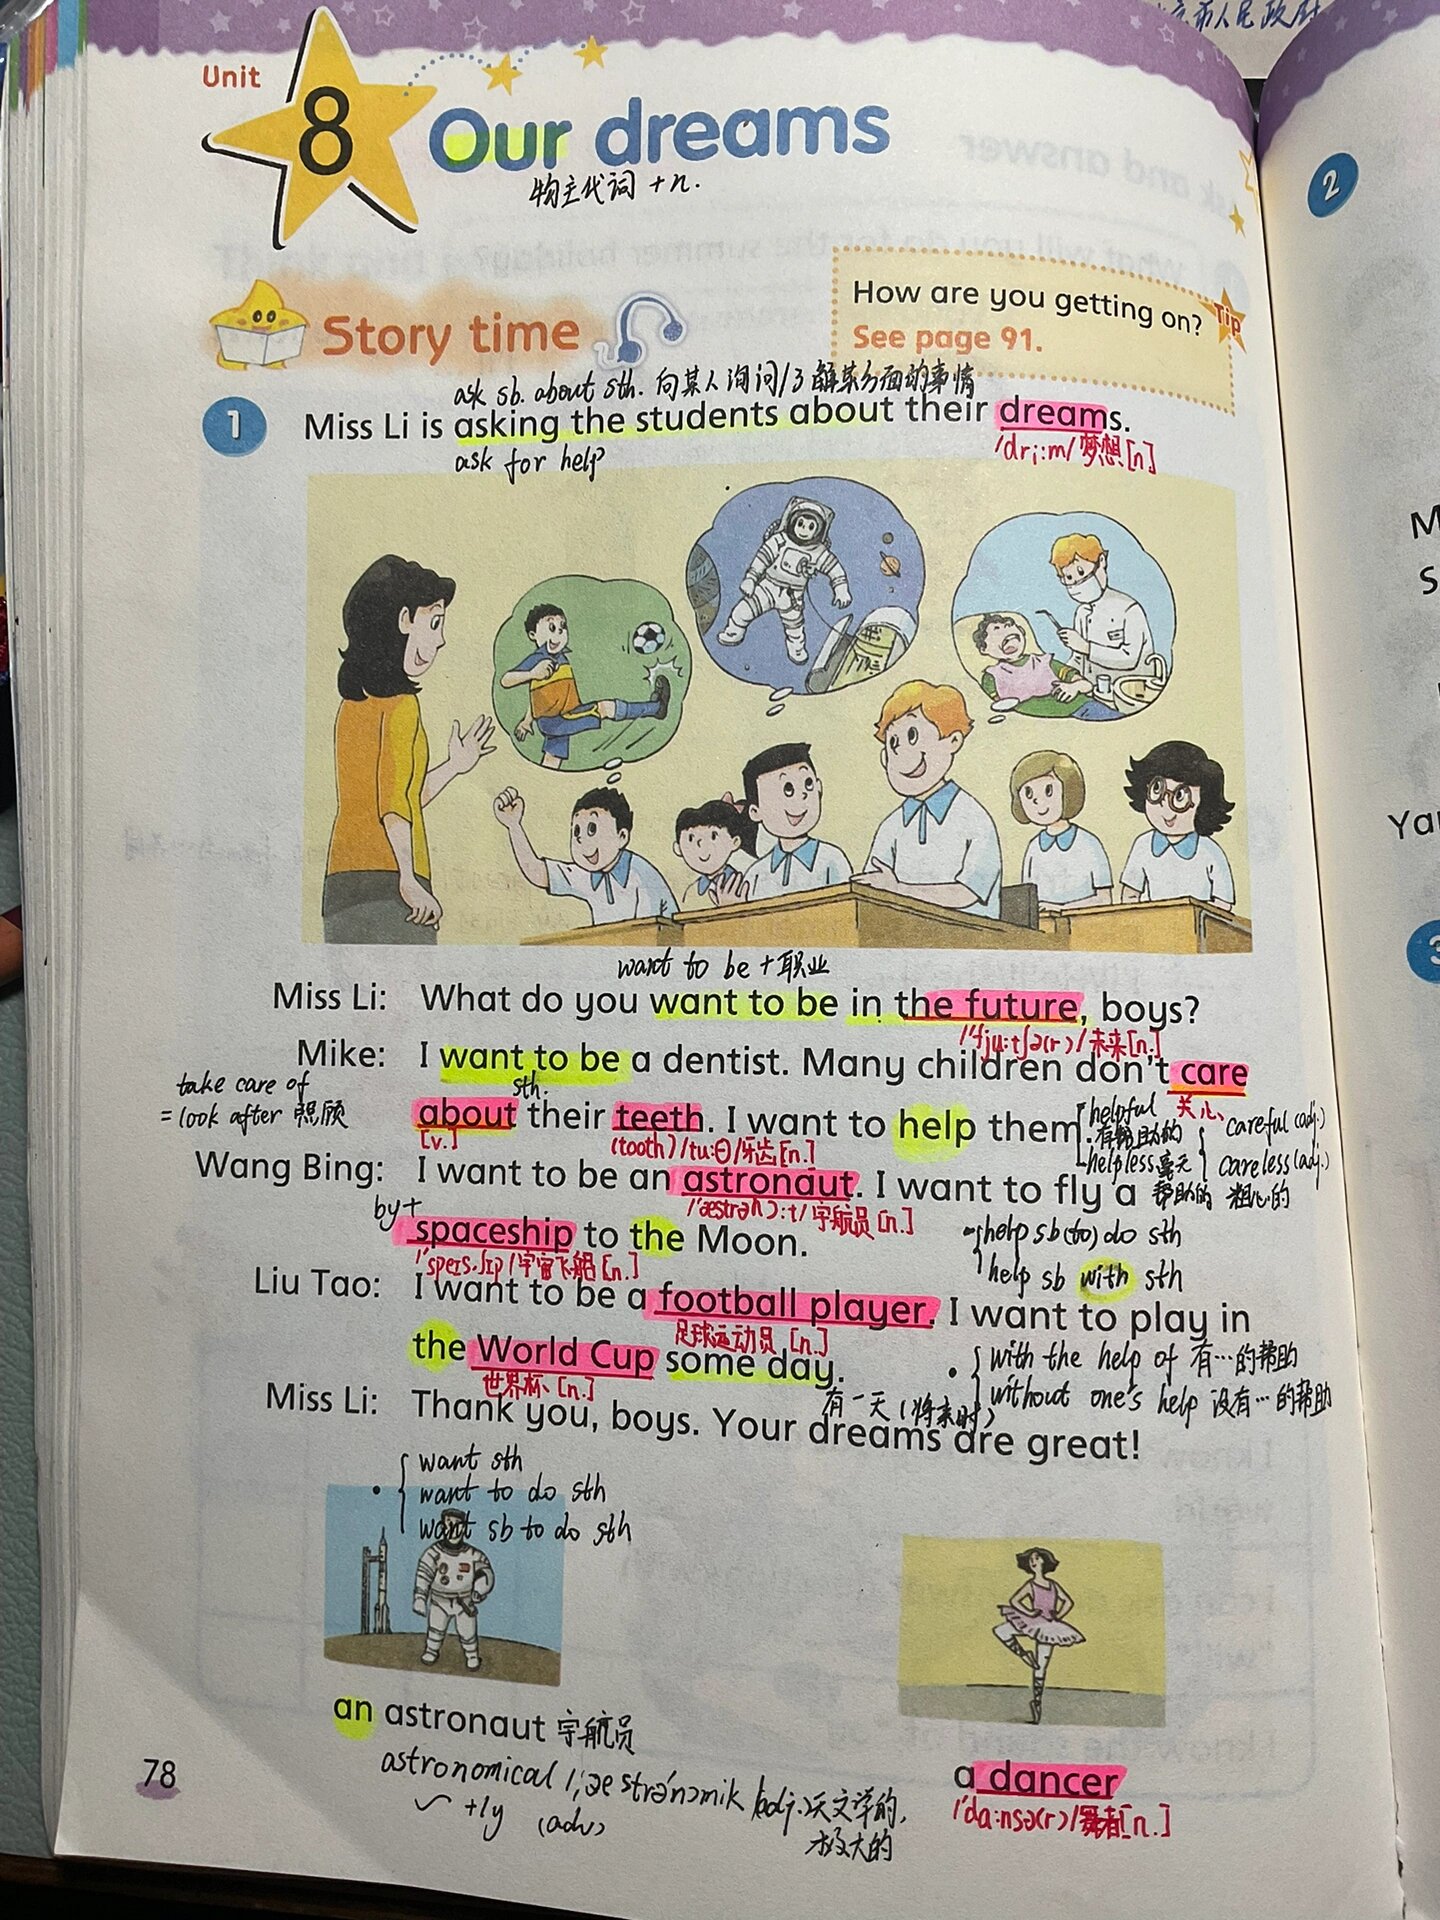 Unit
8
Our dreams
物主代词 +n.
Story time
How are you getting on?
See page 91.
Tip
ask sb. about sth. 向某人询问/了解某方面的事情
1
Miss Li is asking the students about their dreams.
ask for help
/dri:m/ 梦想[n]
want to be + 职业
Miss Li: What do you want to be in the future, boys?
/'fju:tʃə(r)/未来[n.]
Mike: I want to be a dentist. Many children don't care
take care of
= look after 照顾
sth.
关心
about their teeth. I want to help them.
[v.]
(tooth)/tu:θ/牙齿[n.]
helpful
有帮助的
helpless 毫无
帮助的
careful (adj.)
careless (adj.)
粗心的
Wang Bing: I want to be an astronaut. I want to fly a
by+
/'æstrənɔ:t/宇航员[n.]
spaceship to the Moon.
/'speɪsʃɪp/宇宙飞船[n.]
help sb (to) do sth
help sb with sth
Liu Tao: I want to be a football player. I want to play in
足球运动员 [n.]
the World Cup some day.
世界杯 [n.]
有一天(将来时)
with the help of 有…的帮助
without one's help 没有…的帮助
Miss Li: Thank you, boys. Your dreams are great!
want sth
want to do sth
want sb to do sth
an astronaut 宇航员
astronomical /ˌæstrə'nɔmik /adj.天文学的,
极大的
+ly (adv)
a dancer
/'dɑ:nsə(r)/舞者[n.]
78
市人民政府
2
3